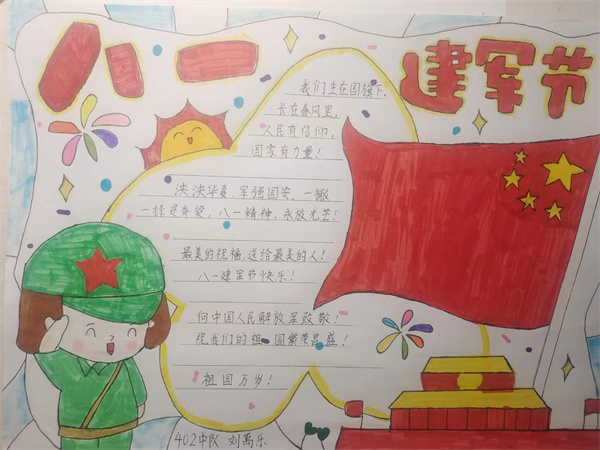 八一
建军节
我们生在国旗下,
长在春风里,
人民有信仰,
国家有力量!
泱泱华夏,军强国安,一撇
一捺是脊梁,八一精神,永放光芒!
最美的祝福,送给最美的人!
八一建军节快乐!
向中国人民解放军致敬!
祝我们的祖国繁荣昌盛!
祖国万岁!
402中队 刘禹乐